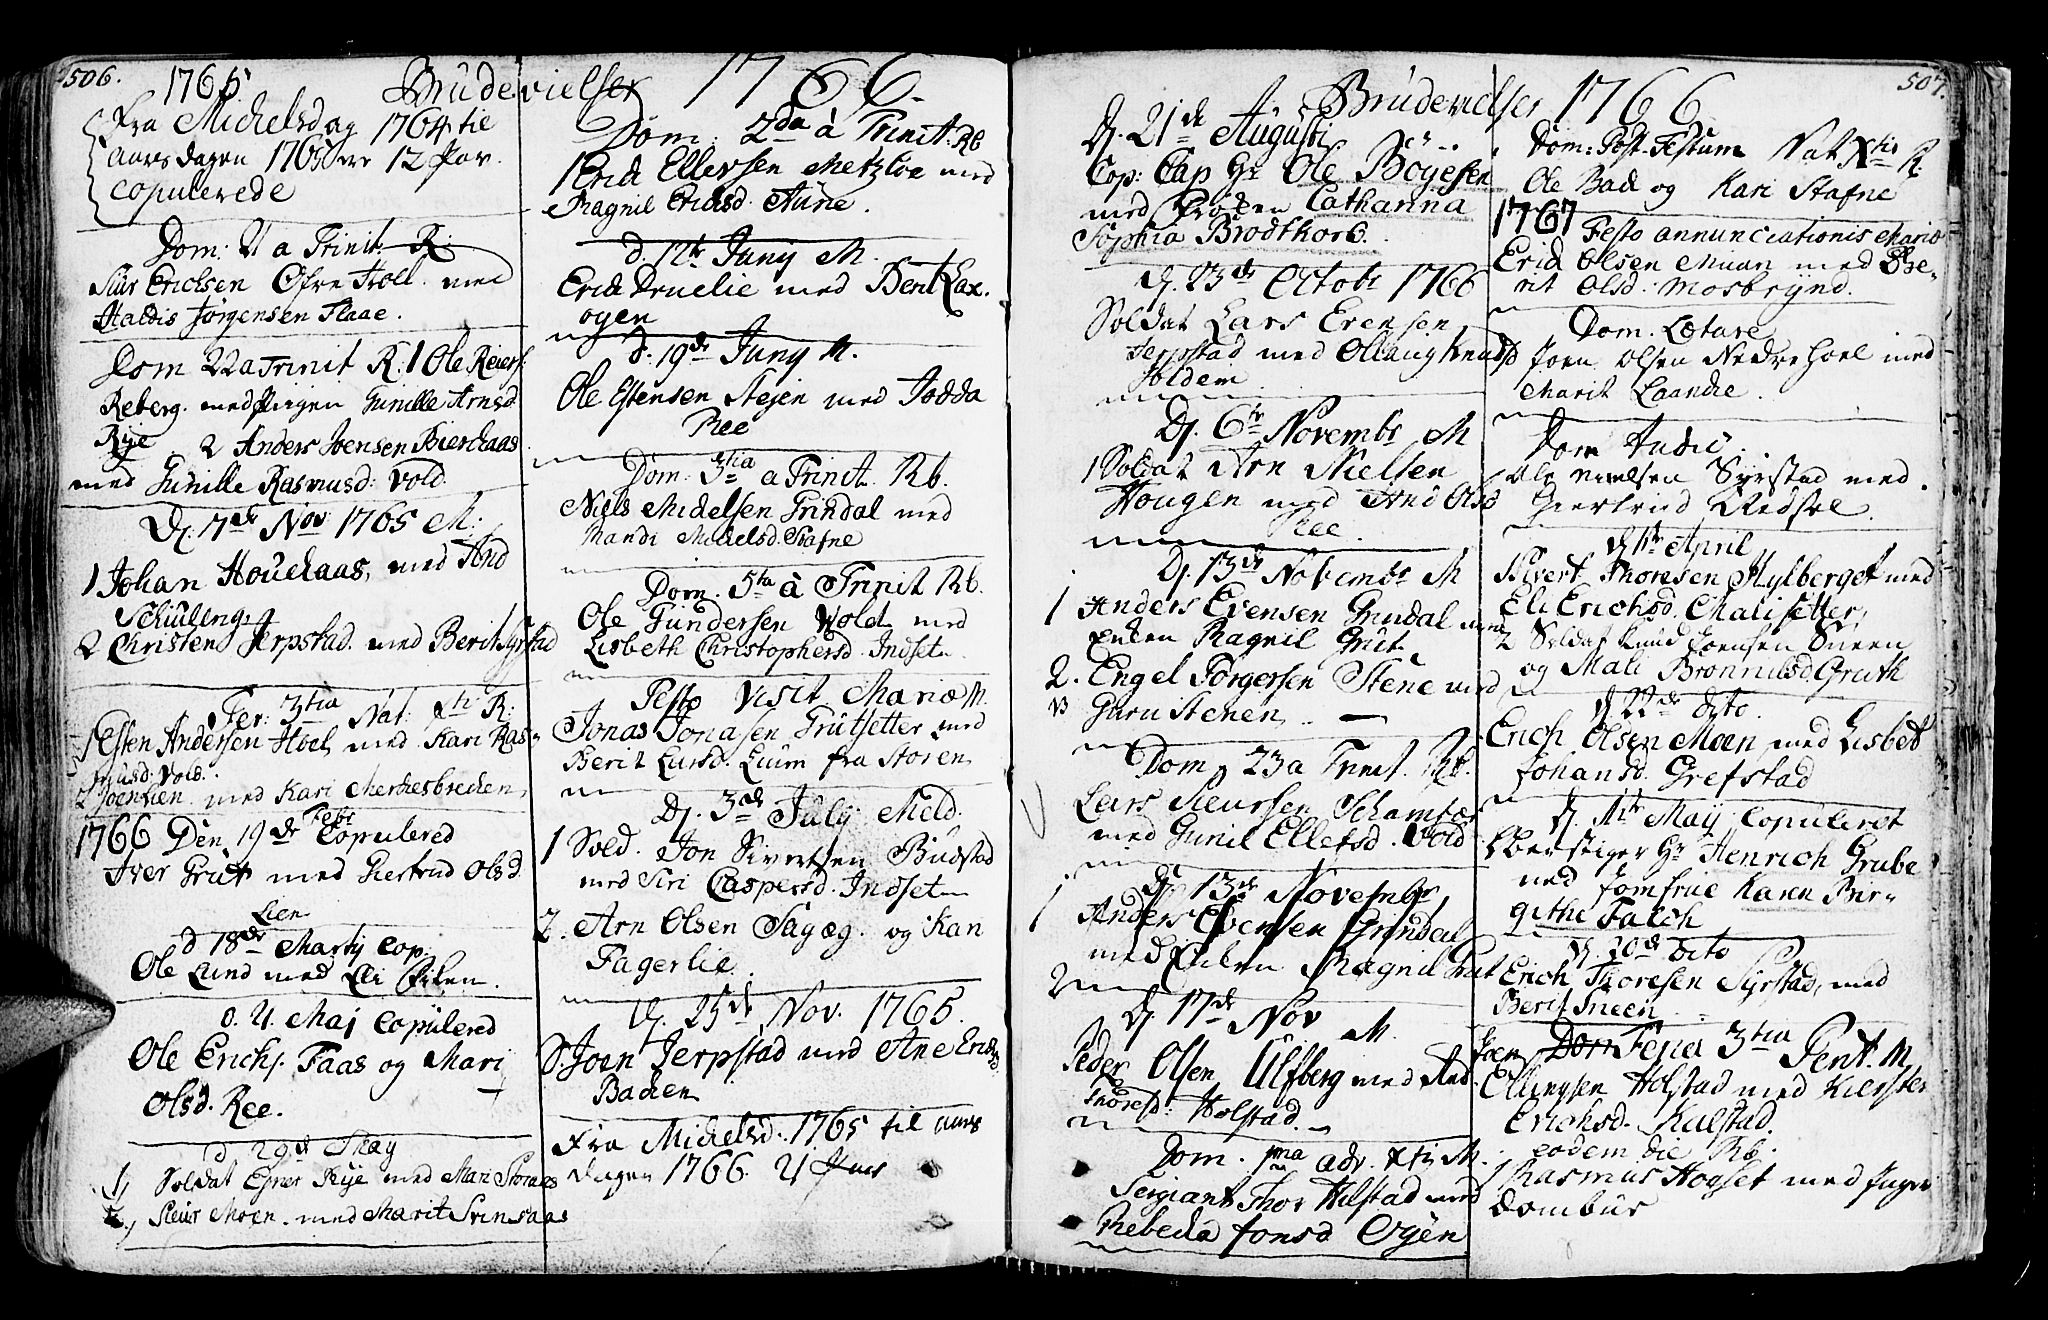 506.
1765 Brudevielser 1766.
Fra Michelsdag 1764 til
aarsdagen 1765 ere 12 Par
copulerede
Dom: 21 a Trinit. R:
Siur Erichsen Øfre Holl. med
Haldis Jørgensen Flaae.
Dom 22 a Trinit R: 1 Ole Reiers.
Reberg. med Pigen Gunille Arnsd
Rÿe 2 Anders Joensen Bierchaas
med Gunille Rasmusd: Vold.
Dj. 7de Nov 1765 M:
1 Johan Houchaas, med And
Schiulleng.
2 Christen Jerpstad. med Berit Syrstad
Fer: 3tia Nat: Xti R:
1 Esten Andersen Hoel, med Kari Ras-
musd: Vold.
2 Joen Lien med Kari Merchesbrechen,
1766 Den 19de Febr Copulered
Iver Grut med Giertrud Olsd.
Lien
d 18de Martij cop.
Ole Lund med Eli
d. 4. Maj copulered
Ole Erichs. Faas og Mari
Olsd. Ree.
d. 29de May
1, Soldat Egner Rije med Mari Storaas
2, Siur Moen. med Marit Svinsaas
Dom: 2da à Trinit: Rb
1 Erich Ellevsen Metzloe med
Ragnil Erichsd. Aune.
d. 12te Junÿ M.
Erich Druelie med Berit Lax.
øyen
d. 19de Junÿ M.
Ole Estensen Stejen med Jodda
Ree
Dom: 3tia a Trinit. Rb.
Niels Michelsen Trindal med
Randi Michelsd. Stafne
Dom. 5ta à Trinit Rb.
Ole Gundersen Wold med
Lisbeth Christophersd. Indset
Festo Visit Mariæ M.
Jonas Jonasen Grutsetter med
Berit Larsd. Lium fra Støren
Dj. 3de Julÿ Meld.
1 Sold. Jon Sivertsen Budstad
med Siri Caspersd. Indset
2. Arn Olsen Sagøg. og Kari
Fagerlie.
Dj. 25de Nov. 1765.
S. Joen Jerpstad med Ane Erichsd.
Bachen
Fra Michelsd. 1765 til aars
dagen 1766. 21 Par
507.
Brudevielser 1766
Dj. 21de Augusti
Cop: Cap Hr Ole Böyesen
med Frøken Catharina
Sophia Brodtkorb.
Dj. 23de Octobr 1766
Soldat Lars Evensen
Jerpstad med Ollaug Knudsd
Holdem
Dj. 6te Novembr M
1 Soldat Arn Nielsen
Hougen med And Olsd
Ree.
Dj. 13de Novembr M
1 Anders Evensen Grindal med
Enken Ragnil Grut.
2. Engel Torgersen Stene med
Guru Stenen
Dom 23 a Trinit. Rb.
Lars Siursen Schamfær
med Gunil Ellefsd. Vold
Dj 13de Novembr,
1 Anders Evensen Grindal
med Enken Ragnil Grut
2
Dj 17de Nov M.
Peder Olsen Ulfberg med And.
Thoresd: Holstad.
Dom. 1ma adv. Xti M.
Sergiant Thor Hilstad med
Rebecha Jonsd Øyen
Dom: Post Festum Nat Xtis R:
Ole Bach og Kari Stafne
1767 Festo annunciationis Mariæ
Erich Olsen Muan med Be-
rit Olsd: Mosbrÿnd.
Dom. Lætare
Joen Olsen Nedre Hoel med
Marit Laanche.
Dom Judic.
Ole Nielsen Syrstad med
Giertrud Redsel.
Dj 1te April
Sivert Thoresen Hylberget med
Eli Erichsd. Malisetter,
2 Soldat Knud Joensen Sneen
og Mali Brønnilsd Gruth
d 22de dito.
Erich Olsen Moen med Lisbet
Johansd. Grefstad
Dj. 1te Maij Copuleret
Oberstiger Hr Henrich Grube
med Jomfrue Karen Bir-
githe Falch
Dj. 20de dito
Erich Thoresen Syrstad, med
Berit Sneen
Dom Feria 3tia Pent. M
Joen
Ollingsen Holstad med Kiersten
Erichsd. Kalstad.
eodem die Rb.
Rasmus Hogset med Inger
Dombur